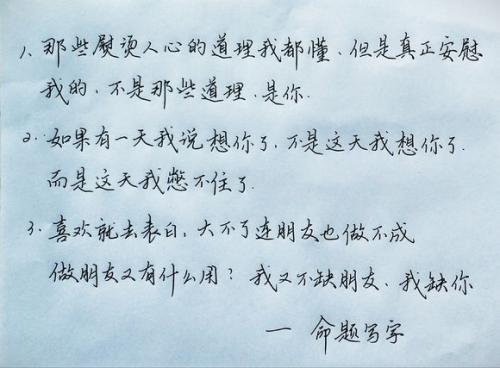 1、那些熨烫人心的道理我都懂、但是真正安慰
我的、不是那些道理、是你.
2、如果有一天我说想你了、不是这天我想你了.
而是这天我憋不住了.
3、喜欢就去表白，大不了连朋友也做不成
做朋友又有什么用？我又不缺朋友、我缺你
— 命题写字